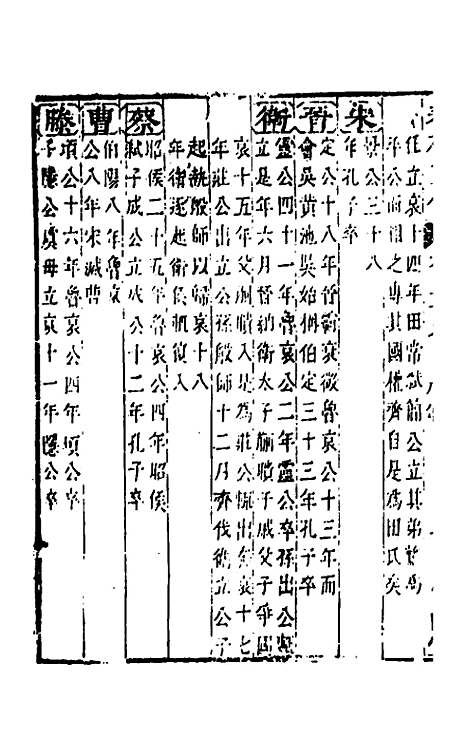 任立哀十四年田常弑簡公立其弟驁為
平公而相之專其國權齊自是為田氏矣
宋
景公三十八
年孔子卒
晉
定公十八年晉衛哀徵魯哀公十三年而
會吳黃池吳始稱伯定三十三年孔子卒
衛
靈公四十一年魯哀公二年靈公卒孫出公輒
立是年六月晉納衛太子蒯聵子戚父子爭國
哀十五年父蒯聵入是為莊公輒出奔哀十七
年莊公出立公孫般師十二月齊伐衛立公子
起執般師以歸哀十八
年衛逐起衛侯輒復入
蔡
昭侯二十五年魯哀公四年昭侯
弒子成公立成公十二年孔子卒
曹
伯陽八年魯哀
公八年宋滅曹
滕
頃公十六年魯哀公四年頃公卒
子隱公虞毋立哀十一年隱公卒